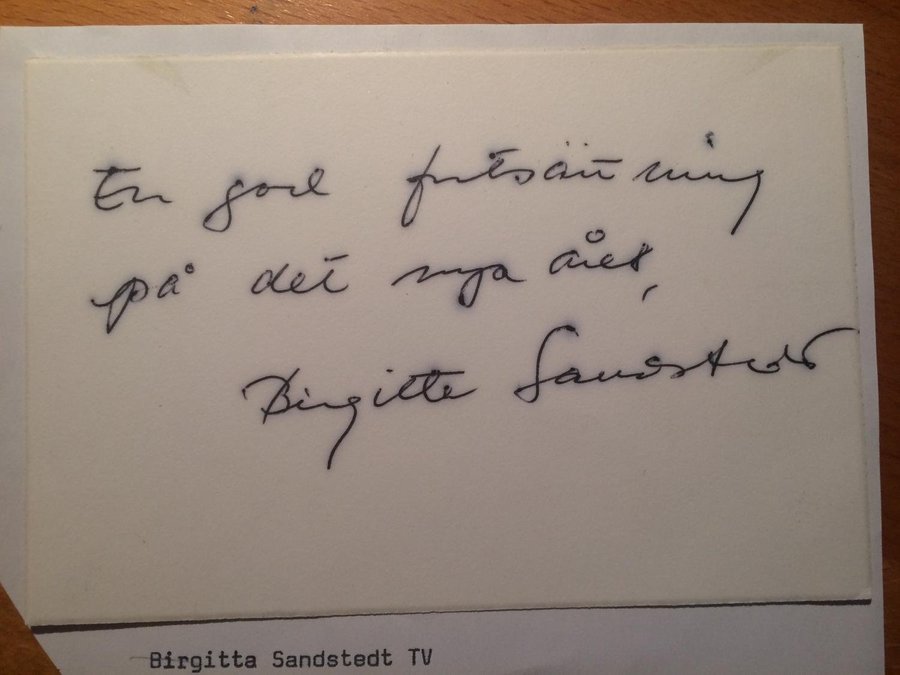 En god fortsättning
på det nya året,
Birgitta Sandstedt
Birgitta Sandstedt TV